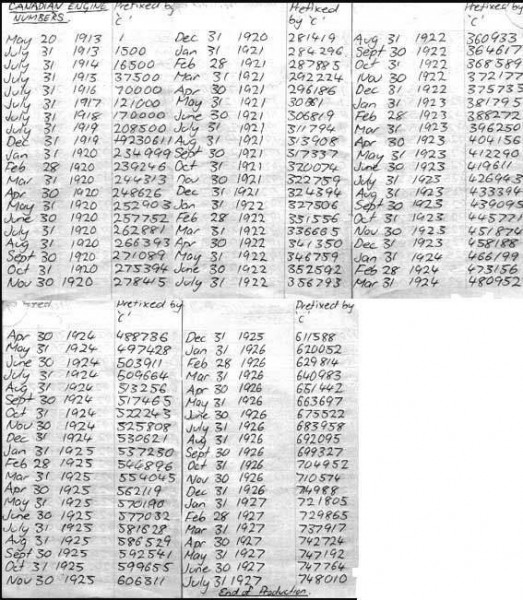 CANADIAN ENGINE NUMBERS. Prefixed by 'C'
May 20 1913 1
July 31 1913 1500
July 31 1914 16500
July 31 1915 37500
July 31 1916 70000
July 31 1917 121000
July 31 1918 170000
July 31 1919 208500
Dec 31 1919
Jan 31 1920 234999
Feb 28 1920 239246
Mar 31 1920 244313
Apr 30 1920 248626
May 31 1920 252903
June 30 1920 257752
July 31 1920 262881
Aug 31 1920 266393
Sept 30 1920 271089
Oct 31 1920 275394
Nov 30 1920 278415
Prefixed by 'C'
Dec 31 1920 281419
Jan 31 1921 284296
Feb 28 1921 287885
Mar 31 1921 292224
Apr 30 1921 296186
May 31 1921
June 30 1921 306819
July 31 1921 311794
Aug 31 1921 313908
Sept 30 1921 317337
Oct 31 1921 320074
Nov 30 1921 322759
Dec 31 1921 324394
Jan 31 1922 327506
Feb 28 1922 331556
Mar 31 1922 336665
Apr 30 1922 341350
May 31 1922 346759
June 30 1922 352592
July 31 1922 356793
Prefixed by 'C'
Aug 31 1922 360933
Sept 30 1922 364617
Oct 31 1922 368589
Nov 30 1922 372177
Dec 31 1922 375733
Jan 31 1923 381795
Feb 28 1923 388272
Mar 31 1923 396250
Apr 30 1923 404156
May 31 1923 412290
June 30 1923 419611
July 31 1923 426943
Aug 31 1923 433394
Sept 30 1923 439095
Oct 31 1923 445771
Nov 30 1923 451874
Dec 31 1923 458188
Jan 31 1924 466199
Feb 28 1924 473156
Mar 31 1924 480952
Prefixed by 'C'
Apr 30 1924 488736
May 31 1924 497428
June 30 1924 503911
July 31 1924 509664
Aug 31 1924 513256
Sept 30 1924 517465
Oct 31 1924 522243
Nov 30 1924 525808
Dec 31 1924 530621
Jan 31 1925 537230
Feb 28 1925 546896
Mar 31 1925 554045
Apr 30 1925 562119
May 31 1925 570190
June 30 1925 577032
July 31 1925 581628
Aug 31 1925 586529
Sept 30 1925 592541
Oct 31 1925 599655
Nov 30 1925 606311
Prefixed by 'C'
Dec 31 1925 611588
Jan 31 1926 620052
Feb 28 1926 629814
Mar 31 1926 640983
Apr 30 1926 651442
May 31 1926 663697
June 30 1926 675522
July 31 1926 683958
Aug 31 1926 692095
Sept 30 1926 699327
Oct 31 1926 704952
Nov 30 1926 710574
Dec 31 1926 74988
Jan 31 1927 721805
Feb 28 1927 729865
Mar 31 1927 737917
Apr 30 1927 742724
May 31 1927 747192
June 30 1927 747764
July 31 1927 748010
End of Production.